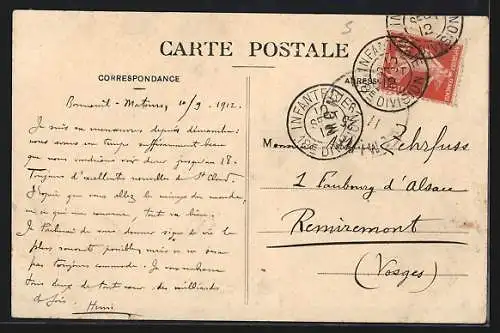 S
CARTE POSTALE
CORRESPONDANCE
ADRESSE
INFANTERIE
18E DIVISION
Bonneuil-Matours, 10/9. 1912.
Je suis en manœuvres depuis dimanche
nous avons un temps suffisamment beau
que nous voudrions voir durer jusqu'au 18.
Toujours d'excellentes nouvelles de St Cloud.
J'espère que vous allez le mieux du monde,
ici en ce qui me concerne, tout va bien.
Je tâcherai de vous donner signe de vie le
plus souvent possible, mais ce ne sera
pas toujours commode. Je vous embrasse
tous deux de tout cœur des milliards
de fois. Henri
Monsieur Zehrfuss
1 Faubourg d'Alsace
Remiremont
(Vosges)